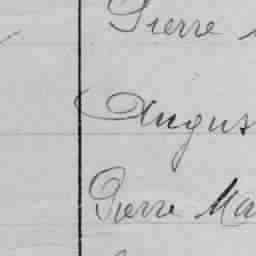 Pierre
Angus
Pierre Ma